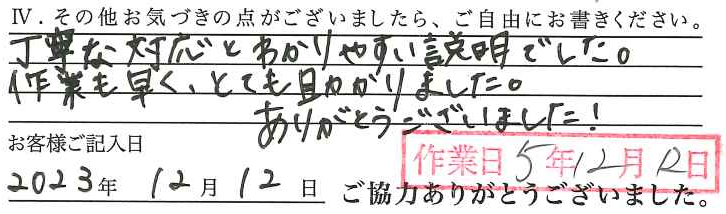 Ⅳ．その他お気づきの点がございましたら、ご自由にお書きください。
丁寧な対応とわかりやすい説明でした。
作業も早く、とても助かりました。
ありがとうございました！
お客様ご記入日
作業日 5年12月12日
2023年 12月 12日
ご協力ありがとうございました。